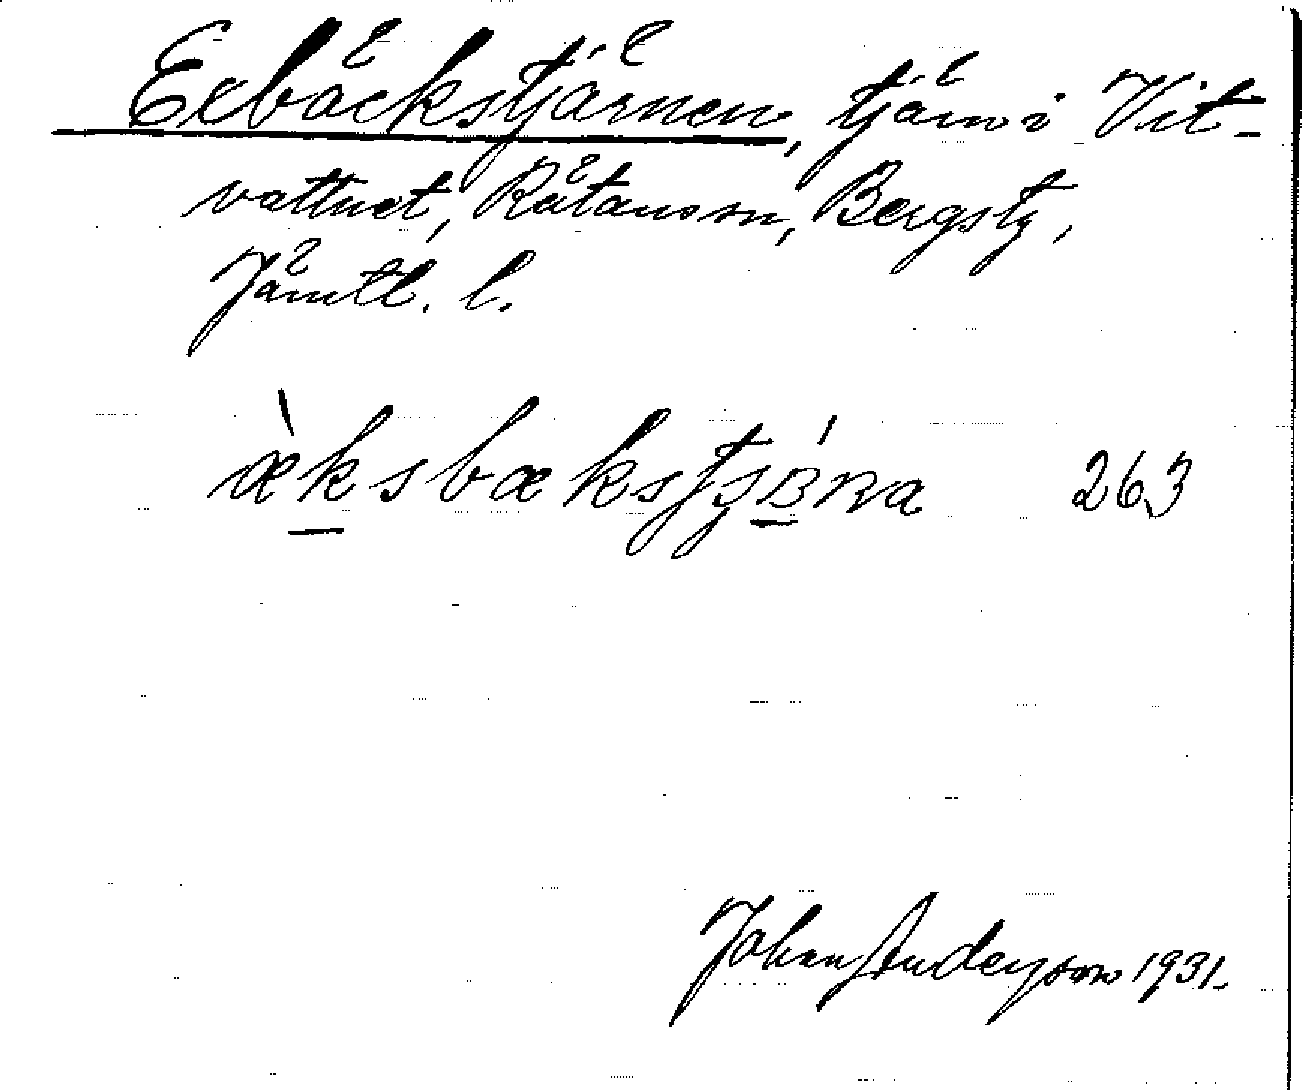 Exbäckstjärnen, tjärn i Vit-
vattnet, Rätans sn, Bergs tg,
Jämtl. l.
æ̀ksbækstjB́Rna 263
Johan Anderson 1931.